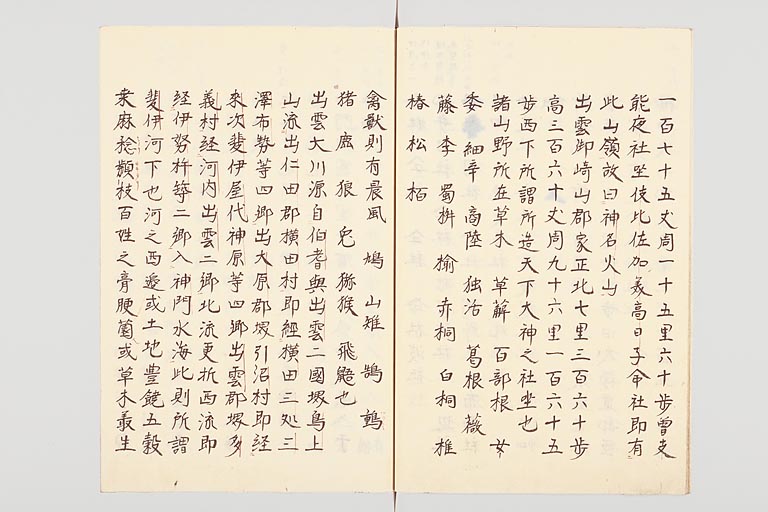 一百七十五丈周一十五里六十歩曽支
能夜社坐伎比佐加美高日子命社即有
此山嶺故曰神名火山
出雲御崎山郡家正北七里三百六十歩
高三百六十丈周九十六里一百六十五
歩西下所謂所造天下大神之社坐也
諸山野所在草木 草薢 百部根 女
委 細辛 商陸 独活 葛根 薇
藤 李 蜀桝 楡 赤桐 白桐 椎
椿 松 栢
禽獣則有晨風 鳩 山雉 鵠 鶉
猪 鹿 狼 兎 猕猴 飛鼯也
出雲大川源自伯耆與出雲二國堺鳥上
山流出仁田郡横田村即經横田三処三
澤布勢等四郷出大原郡堺引沼村即経
来次斐伊屋代神原等四郷出雲郡堺多
義村経河内出雲二郷北流更折西流即
経伊努杵築二郷入神門水海此則所謂
斐伊河下也河之西邊或土地豊饒五穀
桒麻稔頽枝百姓之膏腴薗或草木叢生